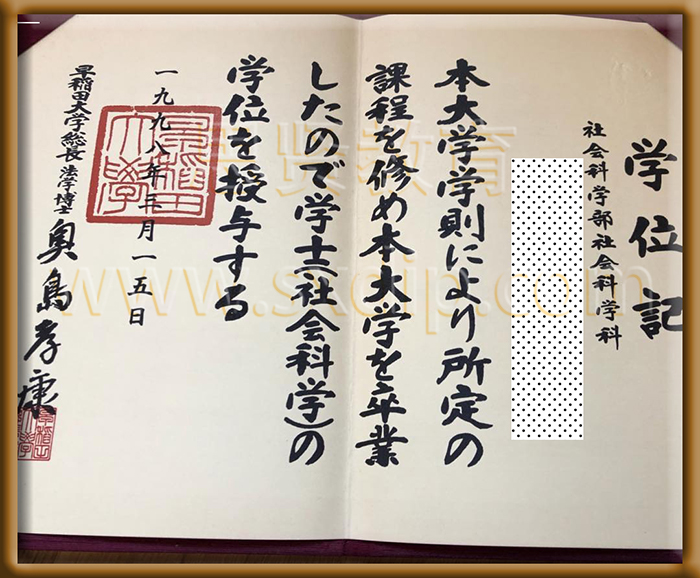 学位記
社会科学部社会科学科
本大学学則により所定の
課程を修め本大学を卒業
したので学士(社会科学)の
学位を授与する
一九九八年三月一五日
早稲田大学総長 法学博士 奥島孝康
早稲田大學
贤教育
www.sxdip.com